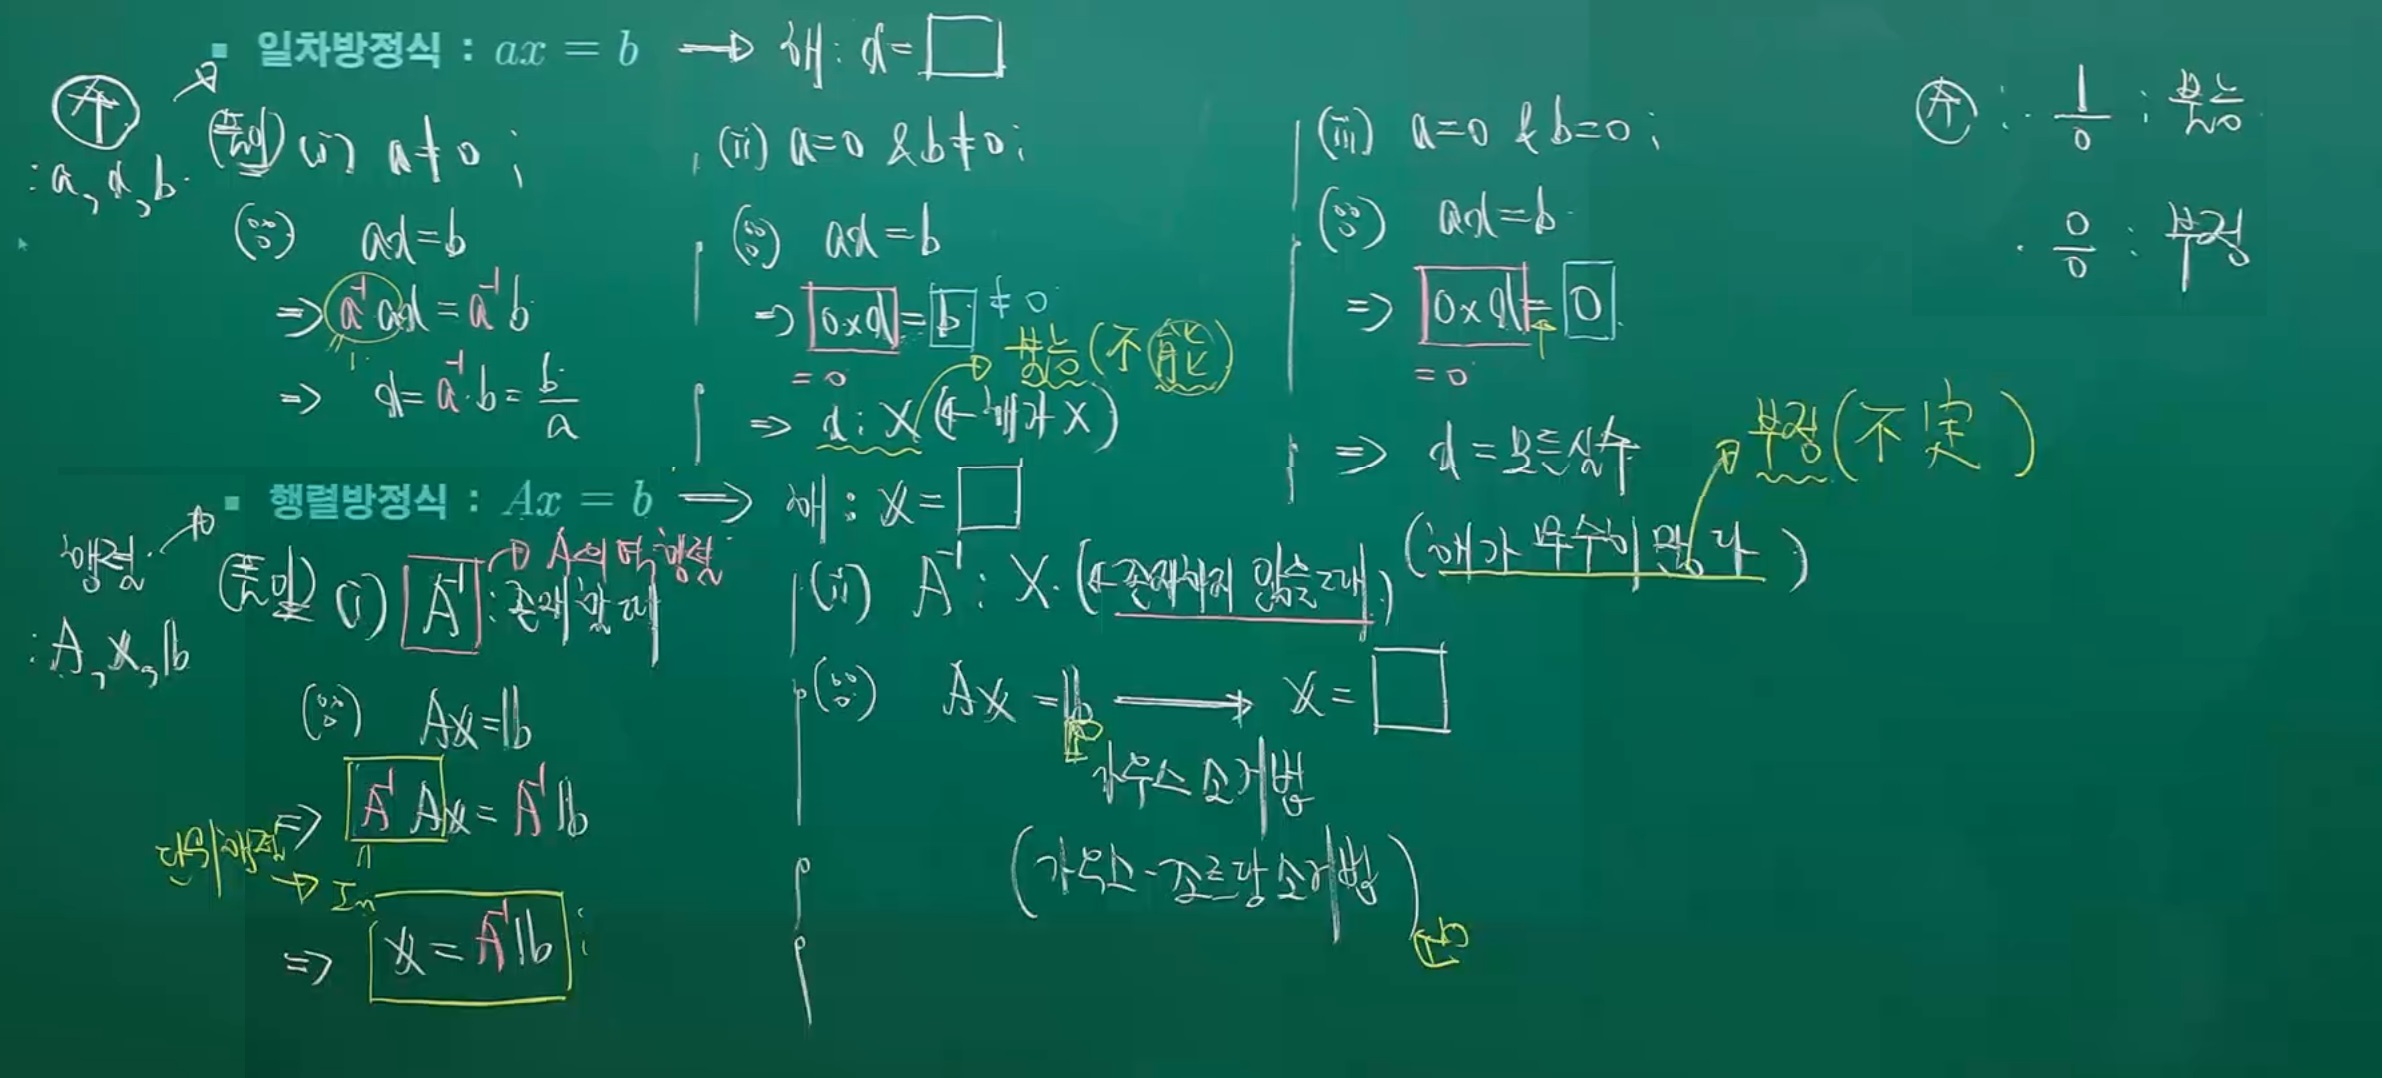 ▪ 일차방정식 : ax = b → 해 : x = □
수 : a, x, b
(풀이) (i) a ≠ 0 ;
(∵) ax = b
⇒ a⁻¹ax = a⁻¹b
1
⇒ x = a⁻¹·b = b/a
(ii) a=0 & b≠0 ;
(∵) ax = b
⇒ 0×x = b ≠ 0
= 0
⇒ x : X (← 해가 X)
불능 (不能)
(iii) a=0 & b=0 ;
(∵) ax = b
⇒ 0×x = 0
= 0
⇒ x = 모든실수
(해가 무수히 많다)
부정 (不定)
수 : · 1/0 : 불능
· 0/0 : 부정
▪ 행렬방정식 : Ax = b ⇒ 해 : x = □
행렬 : A, x, b
(풀이) (i) A⁻¹ : 존재할 때
A의 역행렬
(∵) Ax = b
⇒ A⁻¹Ax = A⁻¹b
단위행렬 → Iₙ
⇒ x = A⁻¹b ;
(ii) A⁻¹ : X. (← 존재하지 않을 때)
(∵) Ax = b → x = □
가우스 소거법
(가우스-조르당 소거법)